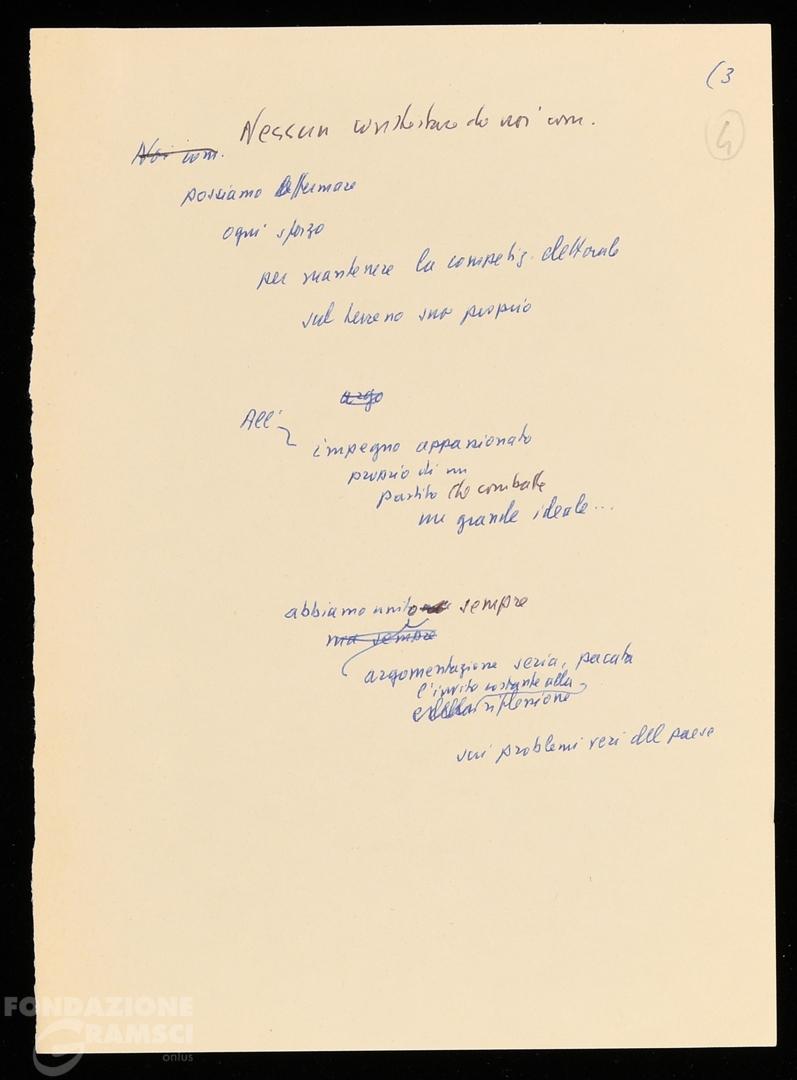 (3
4
Nessun contestare che noi com.
Noi com.
possiamo affermare
ogni sforzo
per mantenere la competiz. elettorale
sul terreno suo proprio
argo
All'
impegno appassionato
proprio di un
partito che combatte
un grande ideale...
abbiamo unito sempre
ma sempre
argomentazione seria, pacata
l'invito costante alla
e riflessione
sui problemi veri del paese
FONDAZIONE
GRAMSCI
onlus